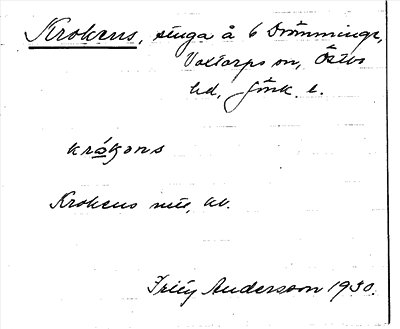 Krokens, stuga å 6 Drömminge,
Voxtorps sn, Östbo
hd, Jönk. l.
krókəns
Krokens           , kv.
Frity Andersson 1930.